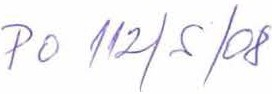 PO 112/5/08